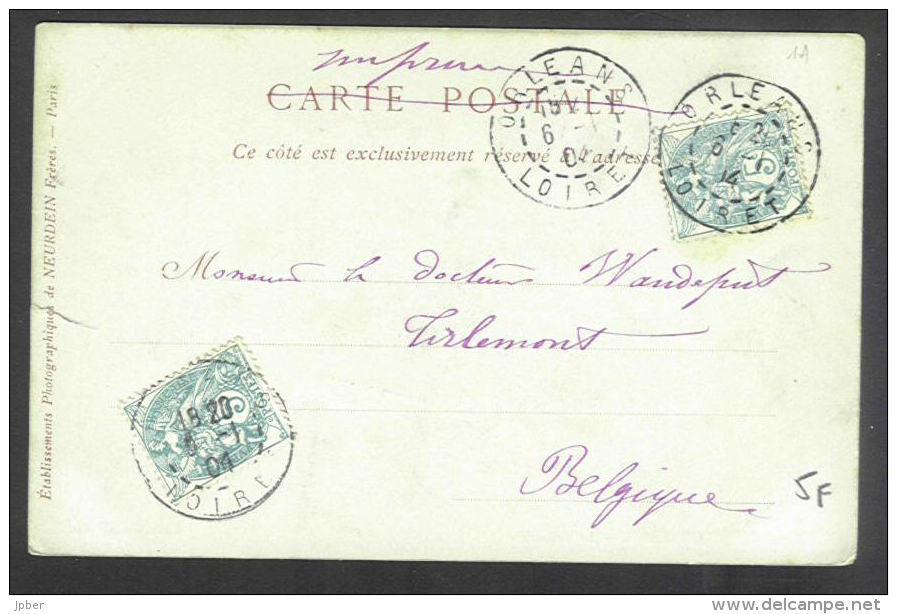 1A
CARTE POSTALE
Ce côté est exclusivement réservé à l'adresse
ORLEANS
6 -1
04
LOIRET
ORLEANS
LOIRET
5
Monsieur le docteur Wandeput
Tirlemont
Belgique
18 20
6 -1
04
LOIRET
5F
Établissements Photographiques de NEURDEIN Frères. — Paris
Jpber
www.delcampe.net